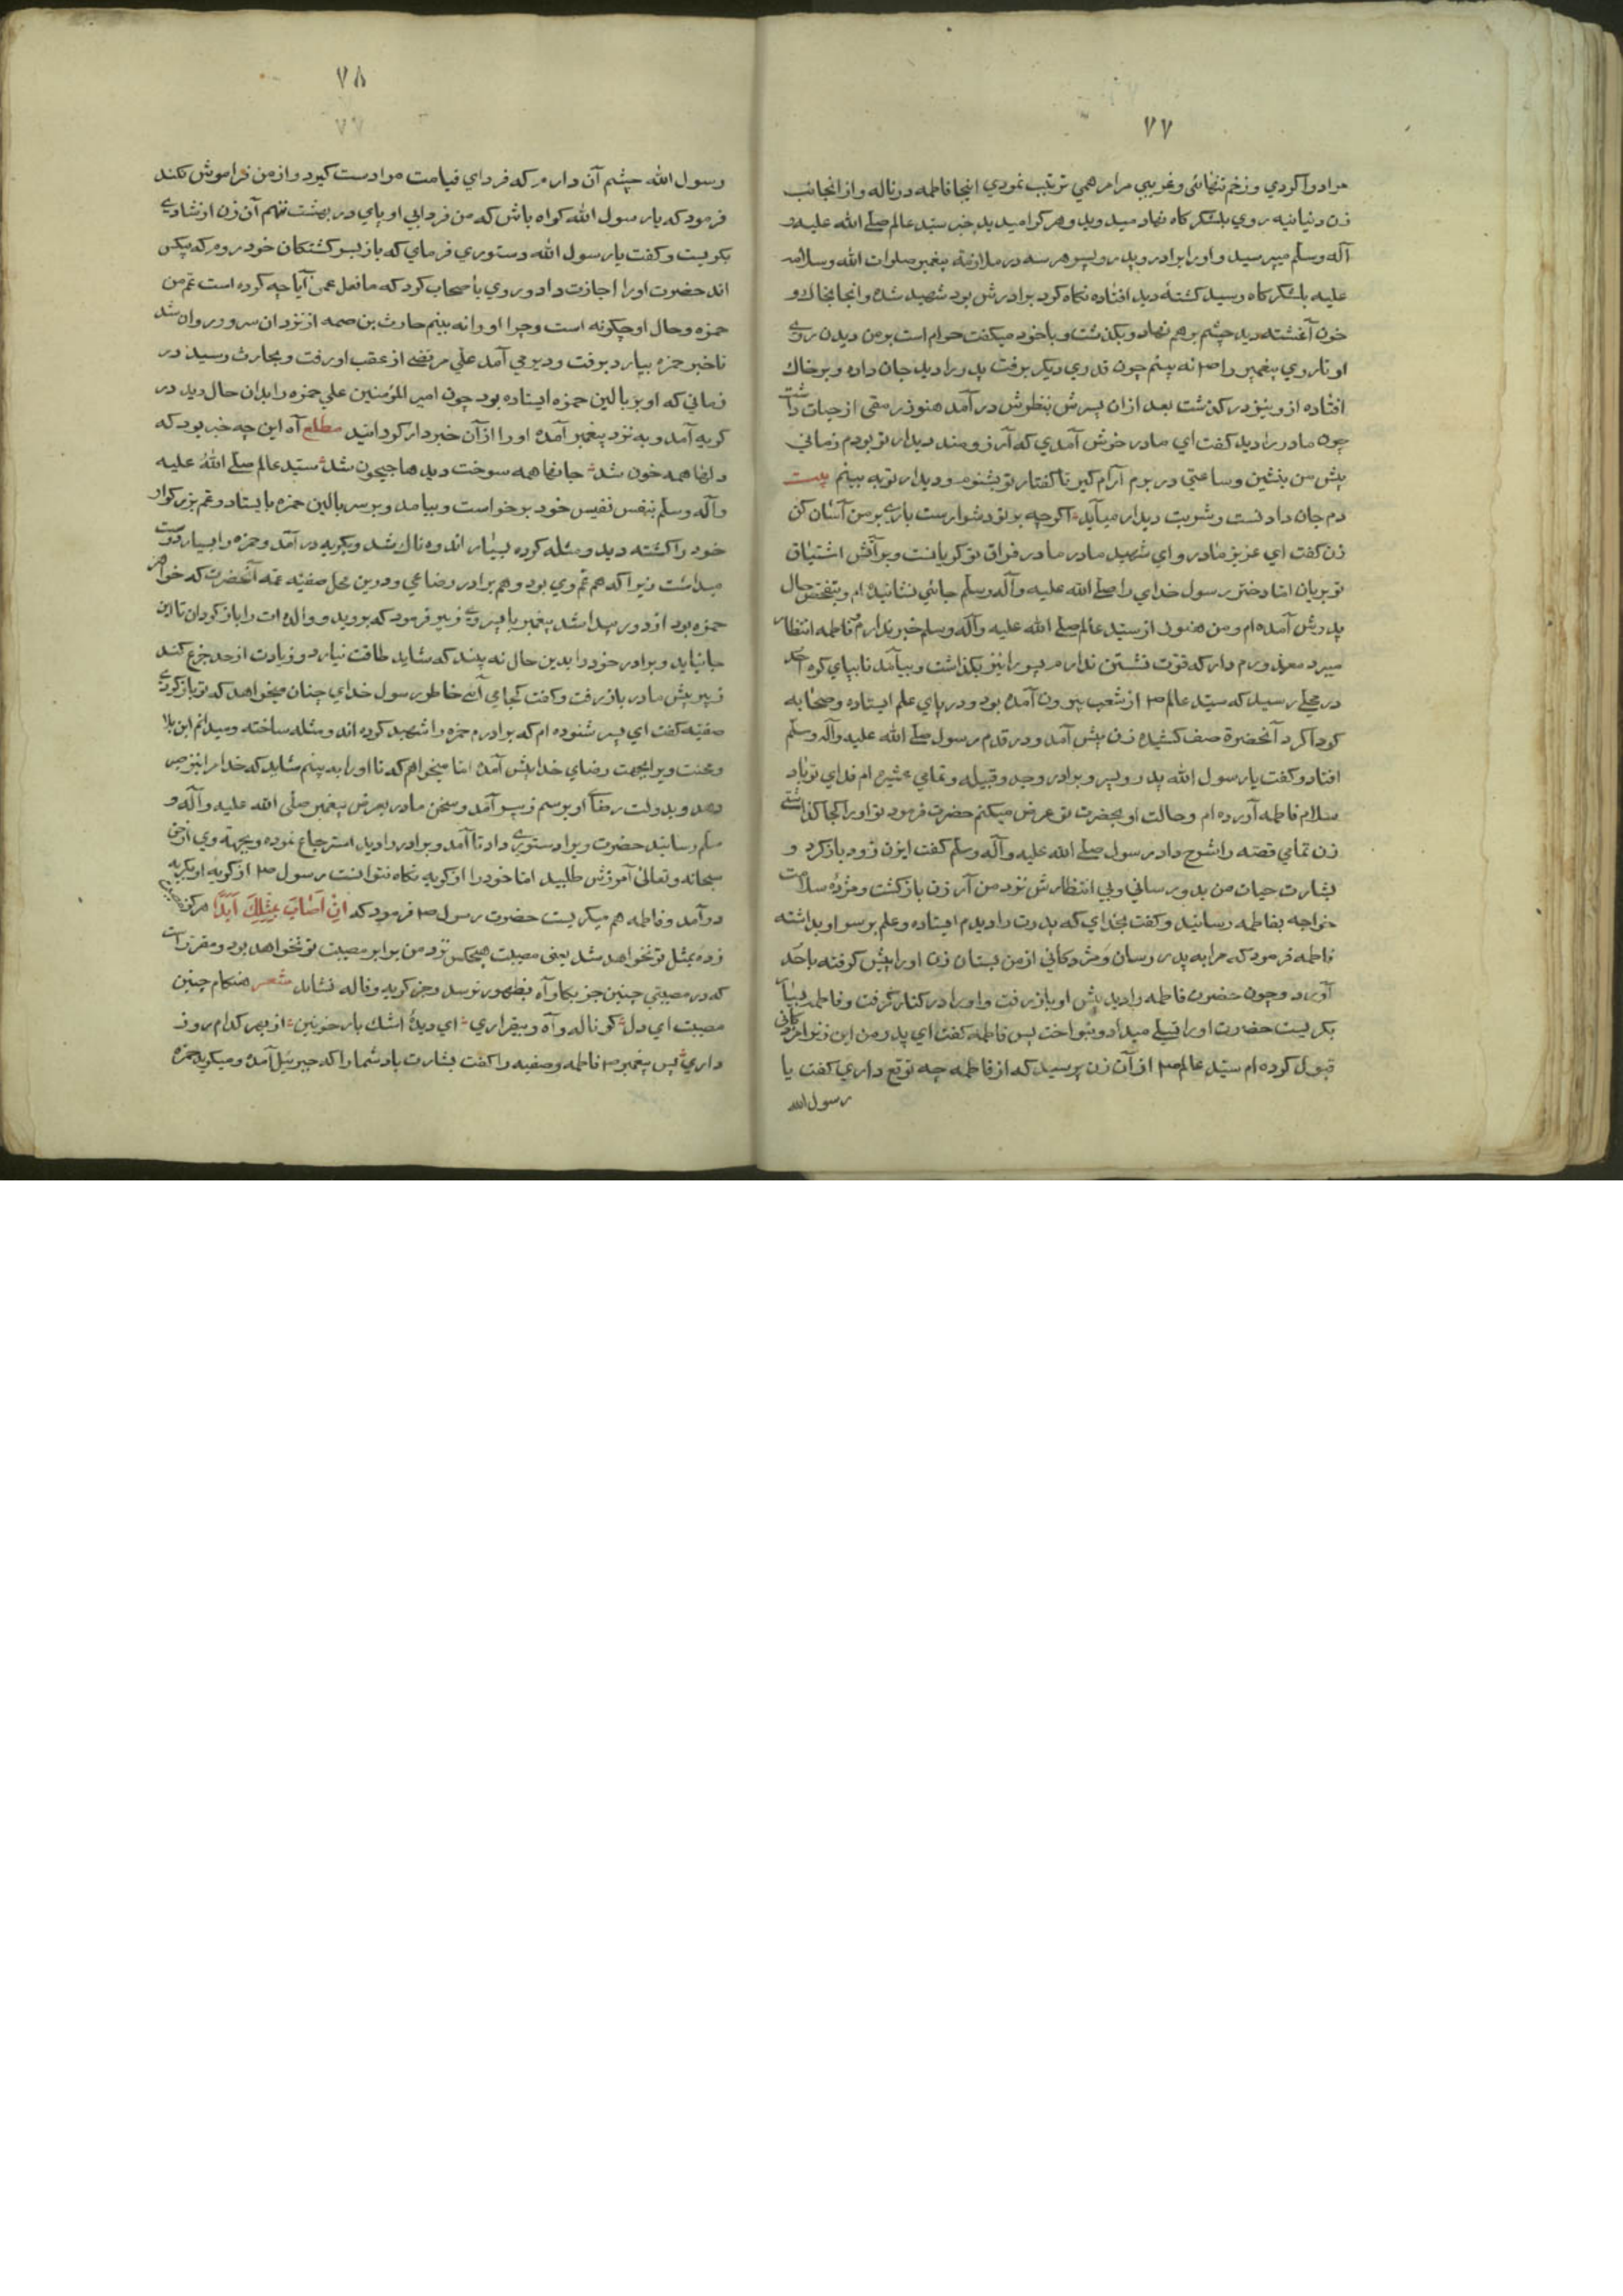 ۷۷
مرا دوا کردي و زخم تنهائي و غريبي مرا مرهمي ترتيب نمودي اينجا فاطمه در ناله و از آنجانب
زن دنيانيه روي بلشکرگاه نهاد ميدويد و هر کرا ميديد خبر سيد عالم صلے الله عليه و
آله وسلم ميپرسيد و او را برادر و پدر و پسر هر سه در ملازمة پيغمبر صلوات الله وسلامه
عليه بلشکرگاه رسيد کشتهٔ ديد افتاده نگاه کرد برادرش بود شهيد شده و آنجا بخاک و
خون آغشته ديد چشم برهم نهاد و بگذشت و با خود ميگفت حرام است بر من ديدن روے
او تا روي پيغمبر را ص نه بينم چون قدري ديگر برفت پدر را ديد جان داده و بر خاک
افتاده از و نيز در گذشت بعد ازان پسرش بنظرش در آمد هنوز رمقي از حيات داشت
چون مادر را ديد گفت اي مادر خوش آمدي که آرزومند ديدار تو بودم زماني
پيش من بنشين و ساعتي در برم آرام گير تا گفتار تو بشنوم و ديدار تو به بينم بيت
دم جان دادنست و شربت ديدار ميبايد اگرچه بر تو دشوارست بارے بر من آسان کن
زن گفت اي عزيز مادر و اي شهيد مادر مادر در فراق تو گريانست و بر آتش اشتياق
تو بريان اما دختر رسول خداي را صلے الله عليه وآله وسلم جائي نشانيده ام و بتفحص حال
پدرش آمده ام و من هنوز از سيد عالم صلے الله عليه وآله وسلم خبر ندارم و فاطمه انتظار
ميبرد معذورم دار که قوت نشستن ندارم پسر را نيز بگذاشت و بيامد تا بپاي کوه احد
در محلے رسيد که سيد عالم ص از شعب بيرون آمده بود و در پاي علم ايستاده و صحابه
گرداگرد آنحضرة صف کشيده زن پيش آمد و در قدم رسول صلے الله عليه وآله وسلم
افتاد و گفت يا رسول الله پدر و پسر و برادر و جد و قبيله و تمامي عشيره ام فداي تو باد
سلام فاطمه آورده ام و حالت او بحضرت تو عرض ميکنم حضرت فرمود تو او را کجا گذاشتے
زن تمامي قصه را شرح داد رسول صلے الله عليه وآله وسلم گفت ايزن زود بازگرد و
بشارت حيات من بدو رساني وبي انتظارش نزد من آر زن بازگشت و مژدهٔ سلامت
خواجه بفاطمه رسانيد و گفت بخداي که پدرت را ديدم ايستاده و علم بر سر او بداشته
فاطمه فرمود که مرا به پدر رسان و مژدگاني از من بستان زن او را پيش گرفته باحد
آورد و چون حضرت فاطمه را ديد پيش او باز رفت و او را در کنار گرفت و فاطمه بسيار
بگريست حضرت او را تسلے ميداد و بنواخت پس فاطمه گفت اي پدر من اين زنرا مژدگاني
قبول کرده ام سيد عالم ص از آن زن پرسيد که از فاطمه چه توقع داري گفت يا
رسول الله
۷۸
۷۷
رسول الله چشم آن دارم که فرداي قيامت مرا دست گيرد و از من فراموش نکند
فرمود که يا رسول الله گواه باش که من فردا بي او پاي در بهشت ننهم آن زن از شادي
بگريست و گفت يا رسول الله دستوري فرماي که باز بسر کشتگان خود روم که بيکس
اند حضرت او را اجازت داد و روي باصحاب کرد که ما فعل عمي آيا چه کرده است عم من
حمزه و حال او چگونه است و چرا او را نه بينم حارث بن صمه از نزد آن سرور روان شد
تا خبر حمزه بيارد برفت و دير مي آمد علي مرتضے از عقب او رفت و بحارث رسيد در
زماني که او بر بالين حمزه ايستاده بود چون امير المؤمنين علي حمزه را بدان حال ديد در
گريه آمد و به نزد پيغمبر آمده او را از آن خبردار گردانيد مطلع آه اين چه خبر بود که
دلها همه خون شد جانها همه سوخت ديدها جيحون شد سيد عالم صلے الله عليه
وآله وسلم بنفس نفيس خود برخواست و بيامد و بر سر بالين حمزه بايستاد و عم بزرگوار
خود را کشته ديد و مثله کرده بسيار اندوهناک شد و بگريه در آمد و حمزه را بسيار دوست
ميداشت زيرا که هم عم وي بود و هم برادر رضاعي و درين محل صفيه عمه آنحضرت که خواهر
حمزه بود از دور پيدا شد پيغمبر با پسر وے زبير فرمود که برو و والده ات را بازگردان تا اين
جا نيايد و برادر خود را بدين حال نه بيند که شايد طاقت نيارد و زيادت از حد جزع کند
زبير پيش مادر باز رفت و گفت کجا مي آئے خاطر رسول خداي چنان ميخواهد که تو بازگردے
صفيه گفت اي پسر شنوده ام که برادرم حمزه را شهيد کرده اند و مثله ساخته و ميدانم اين بلا
و محنت ويرا بجهت رضاي خدا پيش آمده اما ميخواهم که تا او را به بينم شايد که خدا مرا نيز صبر
دهد و بدولت رضاے او برسم زبير آمد و سخن مادر بعرض پيغمبر صلي الله عليه وآله و
سلم رسانيد حضرت ويرا دستورے داد تا آمد و برادر را ديد استرجاع نموده و بجهة وي از حق
سبحانه وتعالي آموزش طلبيد اما خود را از گريه نگاه نتوانست رسول ص از گريهٔ او بگريه
در آمد و فاطمه هم ميگريست حضرت رسول ص فرمود که لن اصاب بمثلك ابدا هرگز
زده بمثل تو نخواهد شد يعني مصيبت هيچکس نزد من برابر مصيبت تو نخواهد بود و مقرر است
که در مصيبتي چنين جز بکا و آه بظهور نرسد و جز گريه و ناله نشايد شعر هنگام چنين
مصيبت اي دل کو ناله و آه و بيقراري اي ديدهٔ اشک بار خونين از بهر کدام روز
داري پس پيغمبر ص فاطمه و صفيه را گفت بشارت باد شما را که جبرئيل آمده و ميگويد حمزه